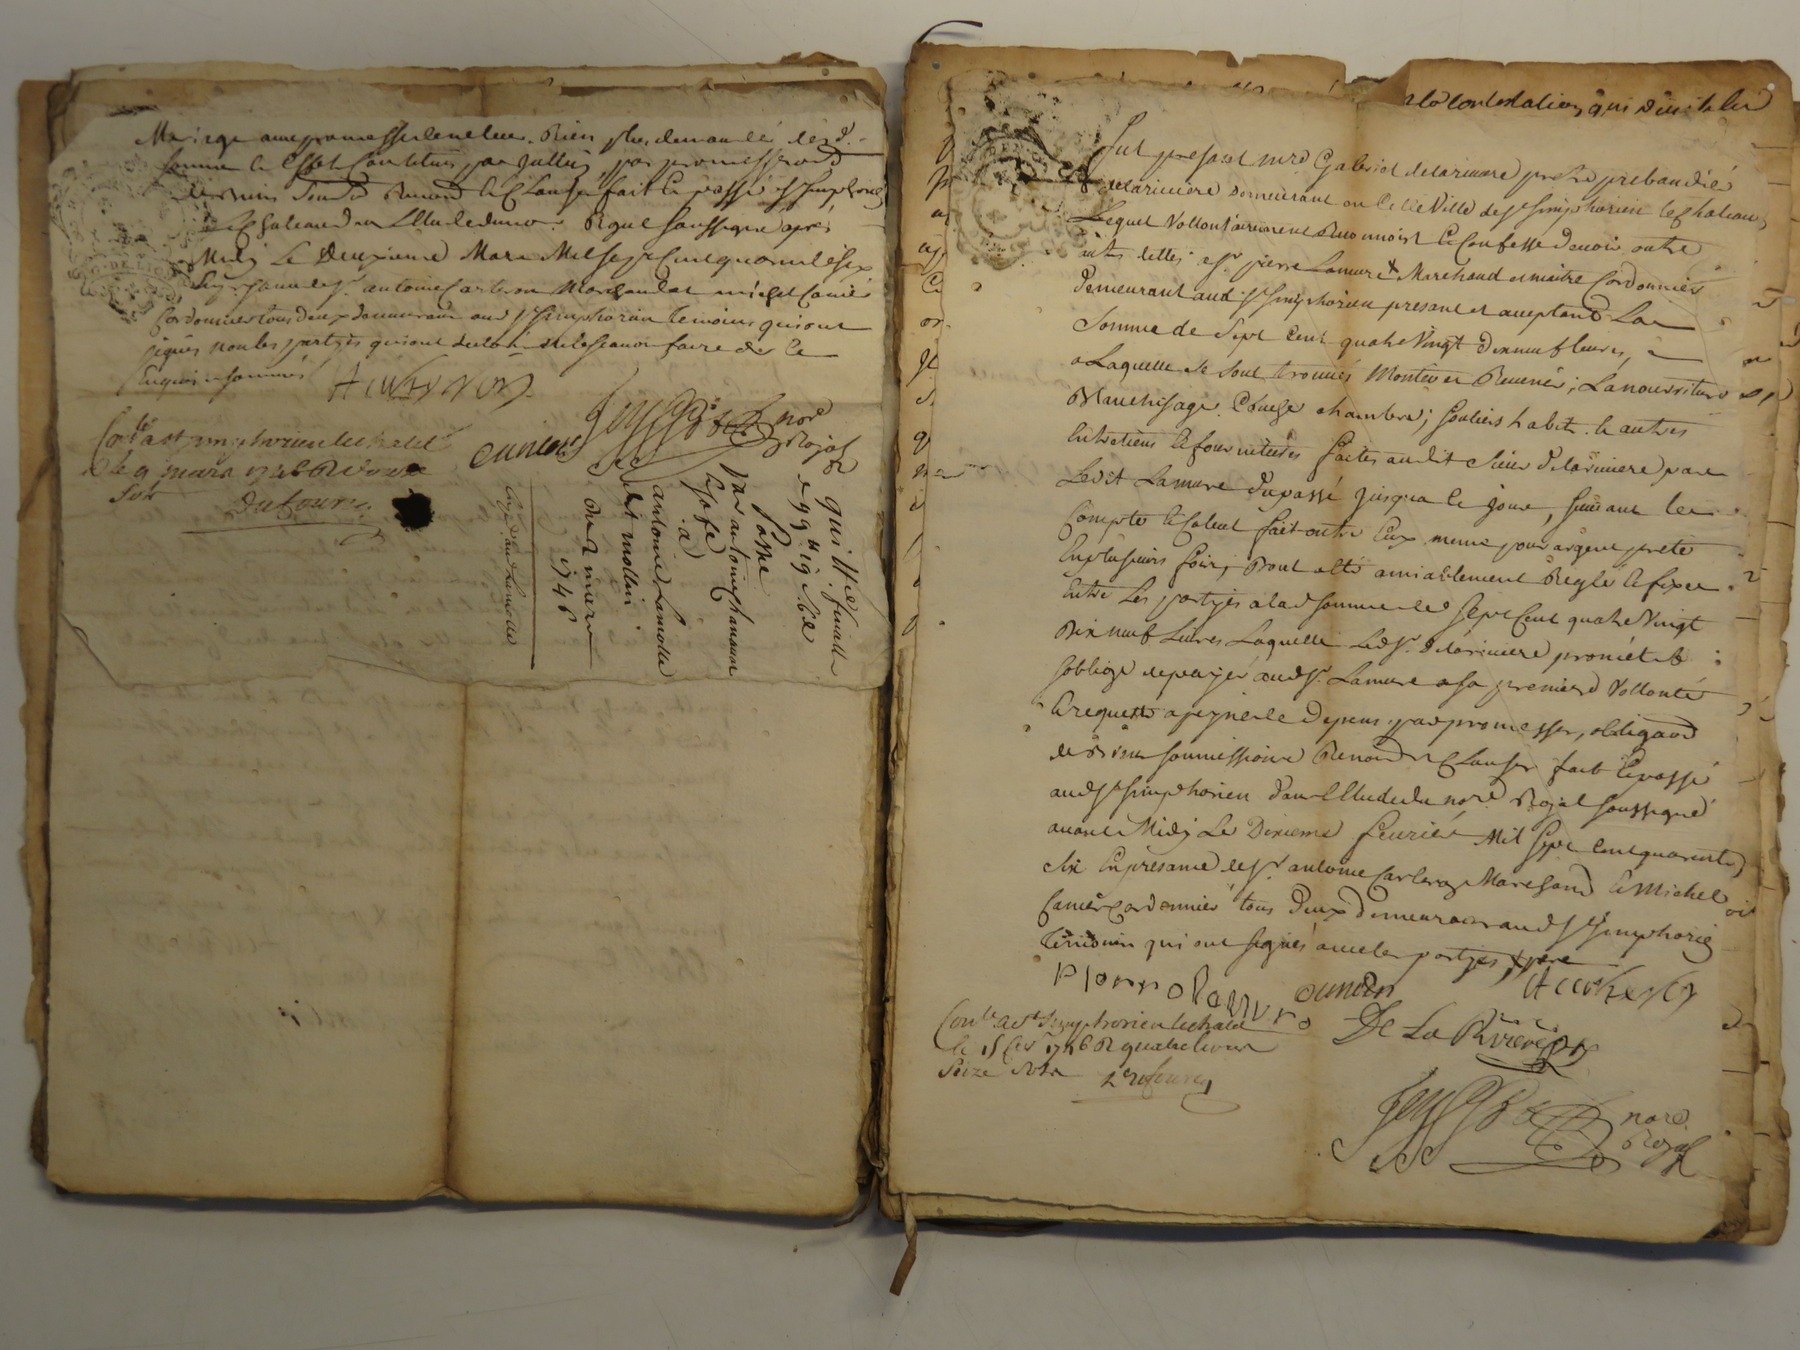 Mariage avec promesse de ne leur Rien plus demander de lad.
somme Et Effet Constitué par Julleuis par promesse oblid
de biens soum d Renond Et Clauses fait Et passé a St Simphorien
Le Chateau dans L'Etude du no.re Royal soussigné après
Midy Le Deuxieme Mars Mil sept Cent quarante Six
En presance de Sr. antoine Carteron Marchand et michel Camier
Cordonnier tous deux demeurant aud St Simphorien temoins qui ont
signés non les partyes qui ont declaré ne le scavoir faire de ce
Enquis Et sommés
ACarteron
Camier
nore Royal
Con.lé a St simphorien le chatel
le 9 mars 1746 R douze
sols
Dufour
quittance finalle
de 99 ll 19 s 6 d
Passé
par antoine
à
antoine Lamotte
et mollin
du 2 mars
1746
la contestation qui Deveit les
Fut present mre Gabriel delariviere pretre prebandié
delariviere demeurant en Cette Ville de St Simphorien le Chateau,
Lequel Vollontairement Reconnoist Et Confesse devoir outre
autres dettes a Sr. pierre Lamure Marchand et maitre Cordonnier
demeurant aud St Simphorien present et acceptant La
Somme de Sept Cent quatre Vingt dix neuf Livres,
a Laquelle Se Sont trouvés Monter et Revenir; La nourriture
Blanchisage, Et Louage chambre; souliers habits Et autres
Entretiens Et fournitures faites audit Sieur Delariviere par
Ledit Lamure du passé jusqua Ce jour, suivant Les
Comptes Et Calcul fait entre Eux meme pour argent prété
En plusieurs fois, Dont a été amiablement Reglé Et fixé
Entre Les partyes a lad somme de Sept Cent quatre Vingt
Dix neuf Livres Laquelle Led Sr. Delariviere promét Et
s'oblige de payer aud Sr. Lamure a sa premiere Vollonté
Et requette a peyne de depens par promesses, obligaon
de Biens soumissions Renond Et Clauses fait Et passé
aud St Simphorien dans L'Etude du no.re Royal soussigné
avant Midy Le Dixieme fevrier Mil Sept Cent quarente
Six En presance de Sr. antoine Carteron Marchand Et Michel
Camier Cordonnier tous Deux demeurant aud St Simphorien
temoins qui ont signés avec les partyes
Pierre Lamure
Camier
ACarteron
De La Rivière ptre
Con.lé a St Simphorien le chatel
le 15 fev 1746 R quatre livres
seize sols
Dufour
nore.
Royal